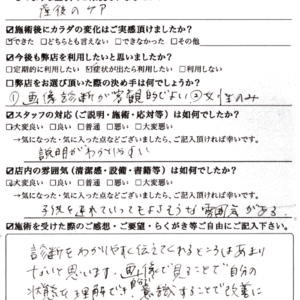 産後のケア
☑施術後にカラダの変化はご実感頂けましたか?
☑できた □どちらとも言えない □できなかった □その他
☑今後も弊店を利用したいと思いましたか?
□定期的に利用したい ☑症状が出たら利用したい □利用しない
☑弊店をお選び頂いた際の決め手は何でしょうか?
①画像診断が客観的でよい②女性のみ
☑スタッフの対応(ご説明・施術・応対等)は如何でしたか?
☑大変良い □良い □普通 □悪い □大変悪い
→気になった・気に入った点などございましたら、ご記入頂ければ幸いです。
説明がわかりやすい
☑店内の雰囲気(清潔感・設備・書籍等)は如何でしたか?
☑大変良い □良い □普通 □悪い □大変悪い
→気になった・気に入った点などございましたら、ご記入頂ければ幸いです。
子供を連れていってもよさそうな雰囲気がある。
☑施術を受けた際のご感想・ご要望・らくがき等ご自由にご記入下さい。
診断をわかりやすく伝えてくれるところはあまり
ないと思います。画像で見ることで自分の
状態を理解でき、意識することで改善に